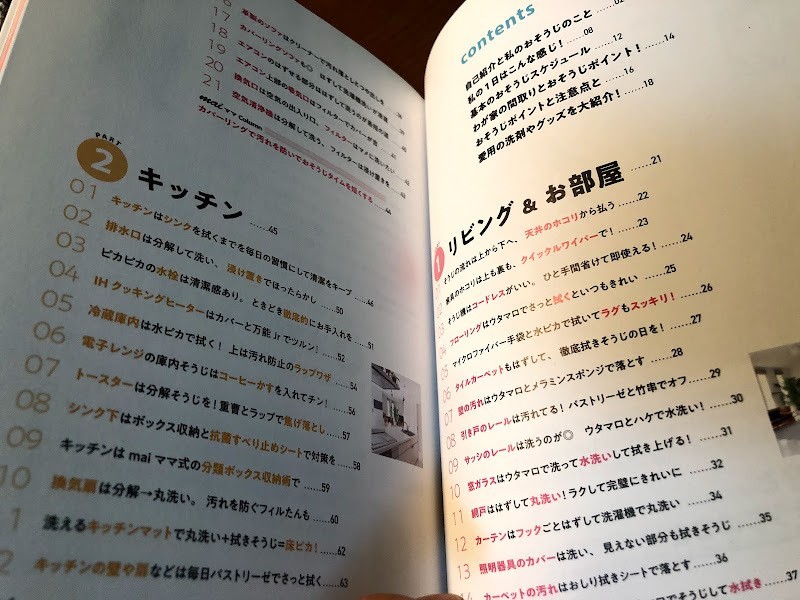 16
17 革製のソファはクリーナーで汚れ落としとつや出しを
18 カバーリングソファも◎
19 エアコンのはずせる部分ははずして洗うのが
20 エアコン上部の吸気口はフィルターでカバーが
21 換気口は空気の出入り口、フィルターはマメに洗いたい
空気清浄機は分解して洗う、フィルターは浸け置きを
mai ママ Column
カバーリングで汚れを防いでおそうじタイムを短くする……44
PART
2 キッチン ……45
01 キッチンはシンクを拭くまでを毎日の習慣にして清潔をキープ……46
02 排水口は分解して洗い、浸け置きでほったらかし ……50
03 ピカピカの水栓は清潔感あり。ときどき徹底的にお手入れを ……51
04 IH クッキングヒーターはカバーと万能 Jr でツルン! ……52
05 冷蔵庫内は水ピカで拭く! 上は汚れ防止のラップワザ ……54
06 電子レンジの庫内そうじはコーヒーかすを入れてチン! ……56
07 トースターは分解そうじを! 重曹とラップで焦げ落とし ……57
08 シンク下はボックス収納と抗菌すべり止めシートで対策を ……58
09 キッチンは mai ママ式の分類ボックス収納術で ……59
10 換気扇は分解→丸洗い。汚れを防ぐフィルたんも ……60
1 洗えるキッチンマットで丸洗い+拭きそうじ=床ピカ! ……62
2 キッチンの壁や扉などは毎日パストリーゼでさっと拭く……63
contents
自己紹介と私のおそうじのこと ……02
私の1日はこんな感じ! ……08
基本のおそうじスケジュール ……12
わが家の間取りとおそうじポイント! ……14
おそうじポイントと注意点と ……16
愛用の洗剤やグッズを大紹介! ……18
1 リビング & お部屋 ……21
そうじの流れは上から下へ、天井のホコリから払う ……22
家具のホコリは上も裏も、クイックルワイパーで! ……23
そうじ機はコードレスがいい。ひと手間省けて即使える! ……24
04 フローリングはウタマロでさっと拭くといつもきれい ……25
05 マイクロファイバー手袋と水ピカで拭いてラグもスッキリ! ……26
06 タイルカーペットもはずして、徹底拭きそうじの日を! ……27
07 壁の汚れはウタマロとメラミンスポンジで落とす ……28
08 引き戸のレールは汚れてる! パストリーゼと竹串でオフ ……29
09 サッシのレールは洗うのが◎ ウタマロとハケで水洗い! ……30
10 窓ガラスはウタマロで洗って水洗いして拭き上げる! ……31
11 網戸ははずして丸洗い! ラクして完璧にきれいに ……32
12 カーテンはフックごとはずして洗濯機で丸洗い ……34
13 照明器具のカバーは洗い、見えない部分も拭きそうじ ……35
14 カーペットの汚れはおしり拭きシートで落とす ……36
でそうじして水拭き ……37